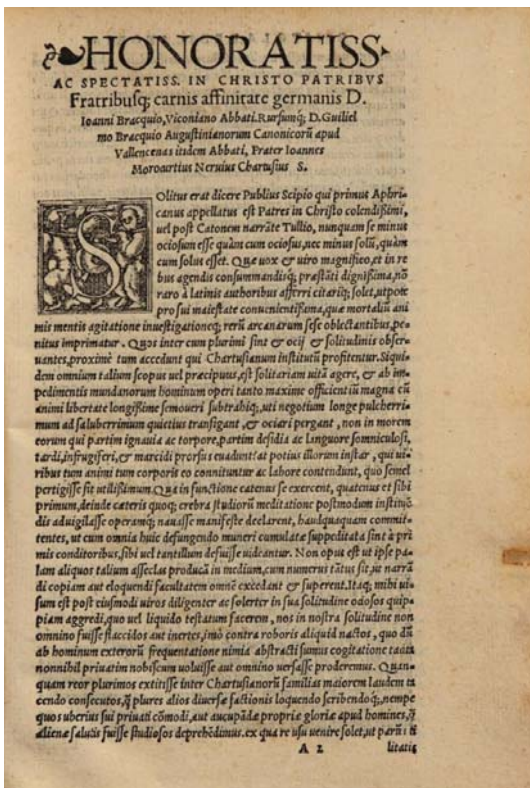 HONORATISS
AC SPECTATISS. IN CHRISTO PATRIBVS
Fratribusq; carnis affinitate germanis D.
Ioanni Bracquio, Viconiano Abbati. Rursumq; D. Guiliel
mo Bracquio Augustinianorum Canonicorũ apud
Vallencenas itidem Abbati, Frater Ioannes
Moroartius Neruius Chartusius S.
SOlitus erat dicere Publius Scipio qui primus Aphri
canus appellatus est Patres in Christo colendißimi,
uel post Catonem narrãte Tullio, nunquam se minus
ociosum esse quàm cum ociosus, nec minus solũ, quàm
cum solus esset. Quæ uox & uiro magnifico, et in re
bus agendis consummandisq; præstãti dignißima, nõ
raro à latinis authoribus afferri citariq; solet, utpote
pro sui maiestate conuenientißima, quæ mortaliũ ani
mis mentis agitatione inuestigationeq; rerũ arcanarum sese oblectantibus, pe
nitus imprimatur. Quos inter cum plurimi sint & ocij & solitudinis obser-
uantes, proximè tum accedunt qui Chartusianum institutũ profitentur. Siqui-
dem omnium talium scopus uel præcipuus, est solitariam uitã agere, & ab im-
pedimentis mundanorum hominum operi tanto maxime officientiũ magna cũ
animi libertate longißime semoueri subtrahiq;, uti negotium longe pulcherri-
mum ad saluberrimum quietius transigant, & ociari pergant, non in morem
eorum qui partim ignauia ac torpore, partim desidia ac languore somniculosi,
tardi, infrugiferi, & marcidi prorsus euadunt: at potius illorum instar, qui ui-
ribus tum animi tum corporis eo connituntur ac labore contendunt, quò semel
pertigisse sit utilißimum. Qua in functione catenus se exercent, quatenus et sibi
primum, deinde cæteris quoq; crebra studiorũ meditatione postmodum instituẽ
dis aduigilasse operamq; nauasse manifeste declarent, haudquaquam commit-
tentes, ut cum omnia huic defungendo muneri cumulatæ suppeditata sint à pri
mis conditoribus, sibi uel tantillum defuisse uideantur. Non opus est ut ipse pa-
lam aliquos talium asseclas producã in medium, cum numerus tãtus sit, ut narrã
di copiam aut eloquendi facultatem omnẽ excedant & superent. Itaq; mihi ui-
sum est post eiusmodi uiros diligenter ac solerter in sua solitudine odosos quip-
piam aggredi, quo uel liquido testatum facerem, nos in nostra solitudine non
omnino fuisse flaccidos aut inertes, imò contra roboris aliquid nactos, quo dũ
ab hominum exterorũ frequentatione nimia abstracti sumus cogitatione tacita
nonnihil priuatim nobiscum uoluisse aut omnino uersasse proderemus. Quan-
quam reor plurimos extitisse inter Chartusianorũ familias maiorem laudem ta
cendo consecutos, q̃ plures alios diuersæ factionis loquendo scribendoq;, nempe
quos uberius sui priuati cõmodi, aut aucupãdæ propriæ gloriæ apud homines, q̃
alienæ salutis fuisse studiosos deprehẽdimus. ex qua re usu uenire solet, ut parũ
A 2 litatis